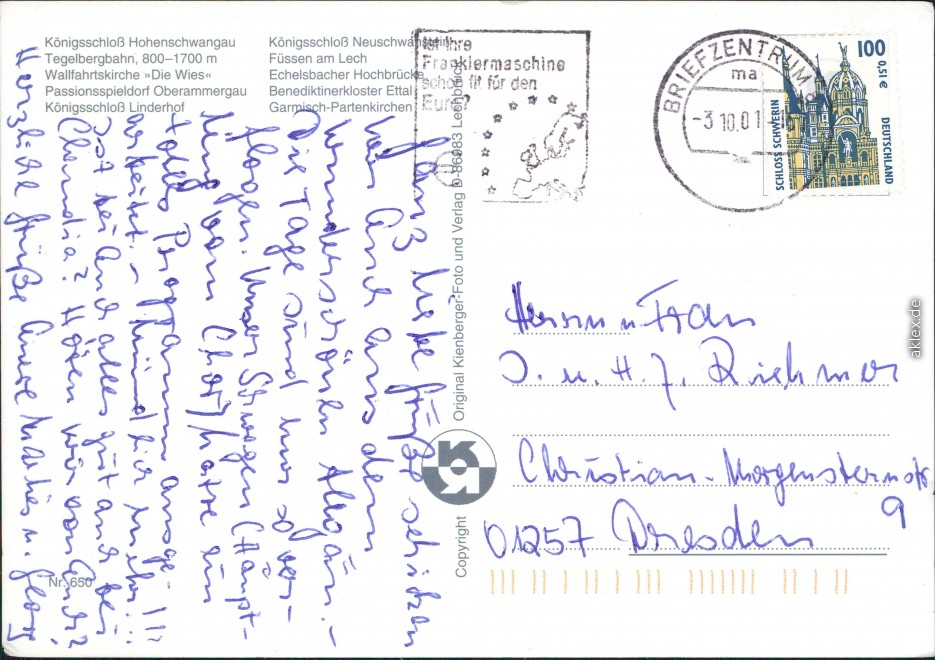 Königsschloß Hohenschwangau
Tegelbergbahn, 800–1700 m
Wallfahrtskirche »Die Wies«
Passionsspieldorf Oberammergau
Königsschloß Linderhof
Königsschloß Neuschwanstein
Füssen am Lech
Echelsbacher Hochbrücke
Benediktinerkloster Ettal
Garmisch-Partenkirchen
Ist Ihre
Frankiermaschine
schon fit für den
Euro?
BRIEFZENTRUM
ma
-3.10.01
100
0,51 €
SCHLOSS SCHWERIN
DEUTSCHLAND
Ganz liebe Grüße schicken
wir Euch aus dem
wunderschönen Allgäu. -
Die Tage sind nur so ver-
flogen. Unser Strogen (Häupt-
ling vom Chor) hatte ein
tolles Programm ausge-
arbeitet. -
Ist bei Euch alles gut auch bei
Claudia? Hören wir von Euch?
Herzliche Grüße Eure u. Georg
Original Kienberger-Foto und Verlag D-86983 Lechbruck
Copyright
Nr. 650
Herrn u. Frau
J. u. H. J. Riehmer
Christian-Morgensternstr.
9
01257 Dresden
aklex.de